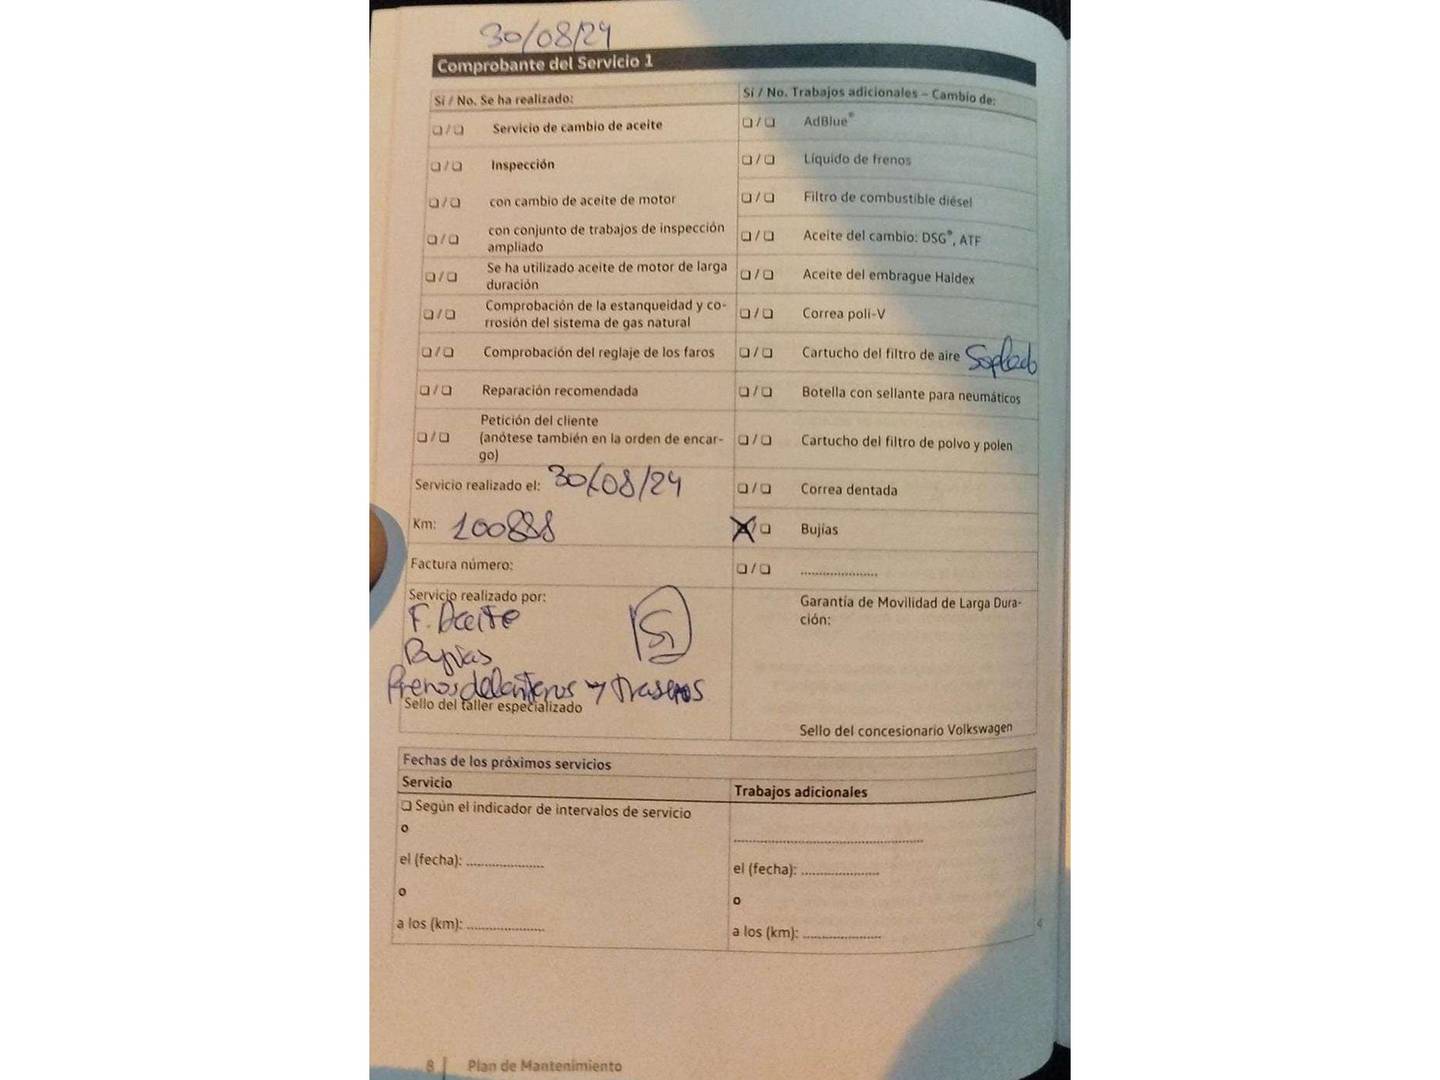 30/08/24
Comprobante del Servicio 1
Sí / No. Se ha realizado:
❏ / ❏ Servicio de cambio de aceite
❏ / ❏ Inspección
❏ / ❏ con cambio de aceite de motor
❏ / ❏ con conjunto de trabajos de inspección
ampliado
❏ / ❏ Se ha utilizado aceite de motor de larga
duración
❏ / ❏ Comprobación de la estanqueidad y co-
rrosión del sistema de gas natural
❏ / ❏ Comprobación del reglaje de los faros
❏ / ❏ Reparación recomendada
❏ / ❏ Petición del cliente
(anótese también en la orden de encar-
go)
Servicio realizado el: 30/08/24
Km: 100888
Factura número:
Servicio realizado por:
F. Aceite
Bujías
Frenos delanteros y traseros
Sello del taller especializado
Sí / No. Trabajos adicionales – Cambio de:
❏ / ❏ AdBlue®
❏ / ❏ Líquido de frenos
❏ / ❏ Filtro de combustible diésel
❏ / ❏ Aceite del cambio: DSG®, ATF
❏ / ❏ Aceite del embrague Haldex
❏ / ❏ Correa poli-V
❏ / ❏ Cartucho del filtro de aire Soplado
❏ / ❏ Botella con sellante para neumáticos
❏ / ❏ Cartucho del filtro de polvo y polen
❏ / ❏ Correa dentada
X / ❏ Bujías
❏ / ❏ ......................
Garantía de Movilidad de Larga Dura-
ción:
Sello del concesionario Volkswagen
Fechas de los próximos servicios
Servicio
❏ Según el indicador de intervalos de servicio
o
el (fecha): ......................
o
a los (km): ......................
Trabajos adicionales
......................................................
el (fecha): ......................
o
a los (km): ......................
8 | Plan de Mantenimiento